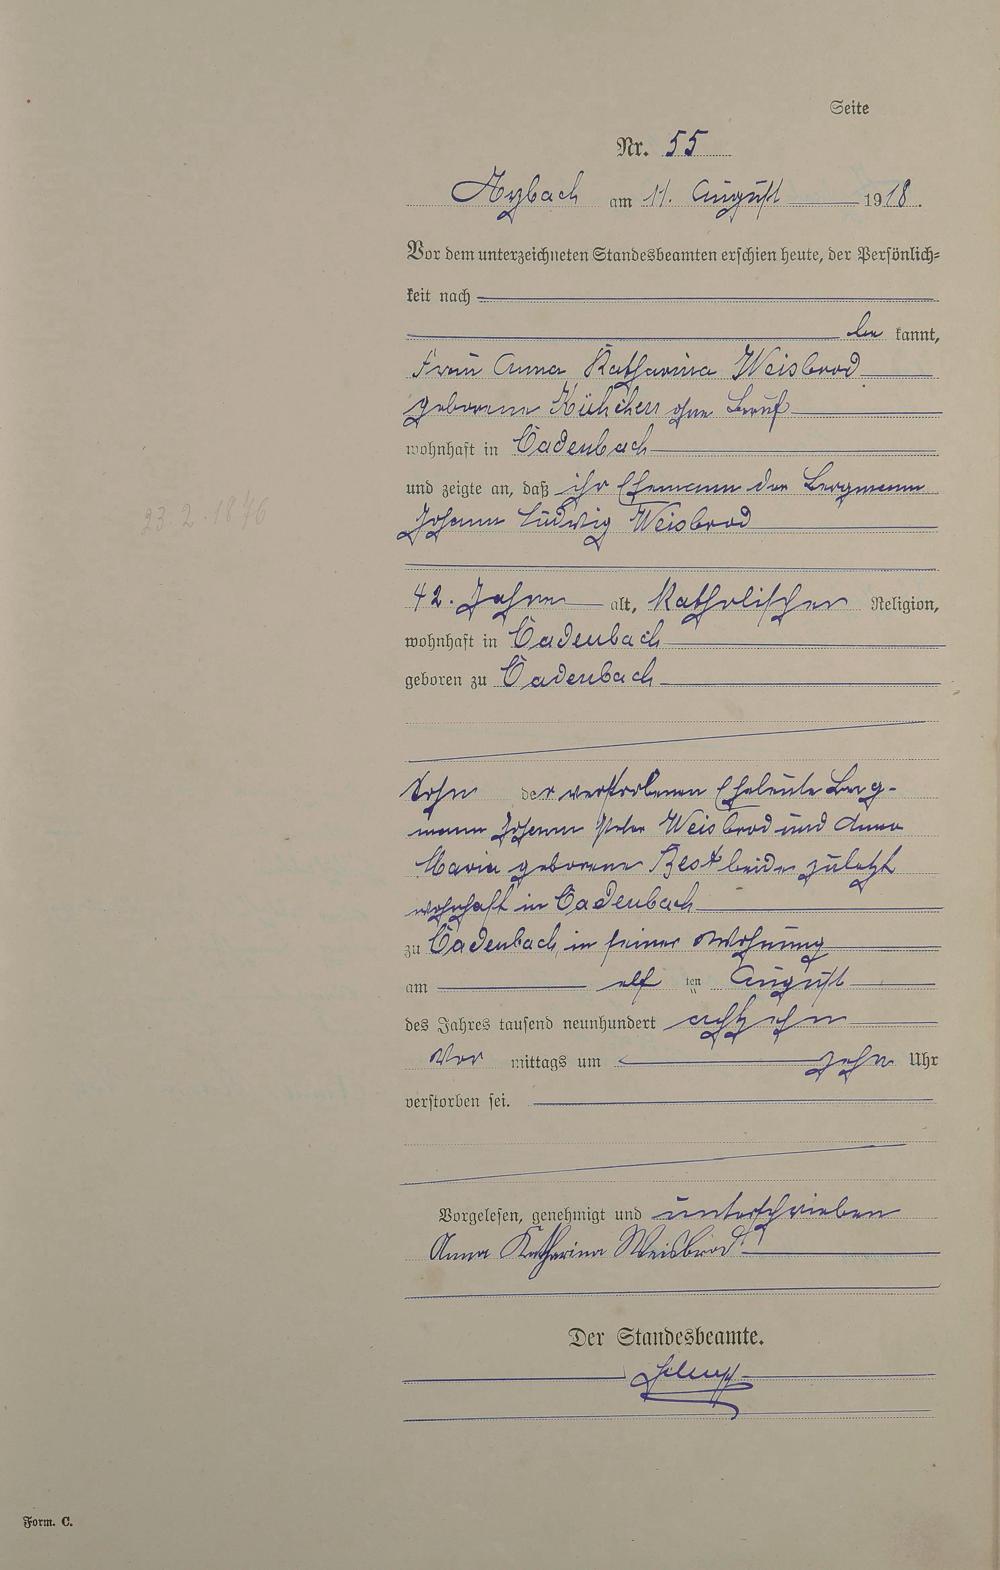 Seite
Nr. 55
Arzbach am 11. August 1918.
Vor dem unterzeichneten Standesbeamten erschien heute, der Persönlich=
keit nach
be kannt,
Frau Anna Katharina Weisbrod
geborene ohne Beruf
wohnhaft in Cadenbach
und zeigte an, daß ihr Ehemann der Bergmann
Johann Ludwig Weisbrod
23.2.1876
42. Jahren alt, Katholischer Religion,
wohnhaft in Cadenbach
geboren zu Cadenbach
Sohn der verstorbenen Eheleute Berg-
mann Johann Peter Weisbrod und Anna
Maria geborene Best beide zuletzt
wohnhaft in Cadenbach
zu Cadenbach in seiner Wohnung
am elf ten August
des Jahres tausend neunhundert achtzehn
Vor mittags um zehn Uhr
verstorben sei.
Vorgelesen, genehmigt und unterschrieben
Anna Katharina Weisbrod
Der Standesbeamte.
Form. C.